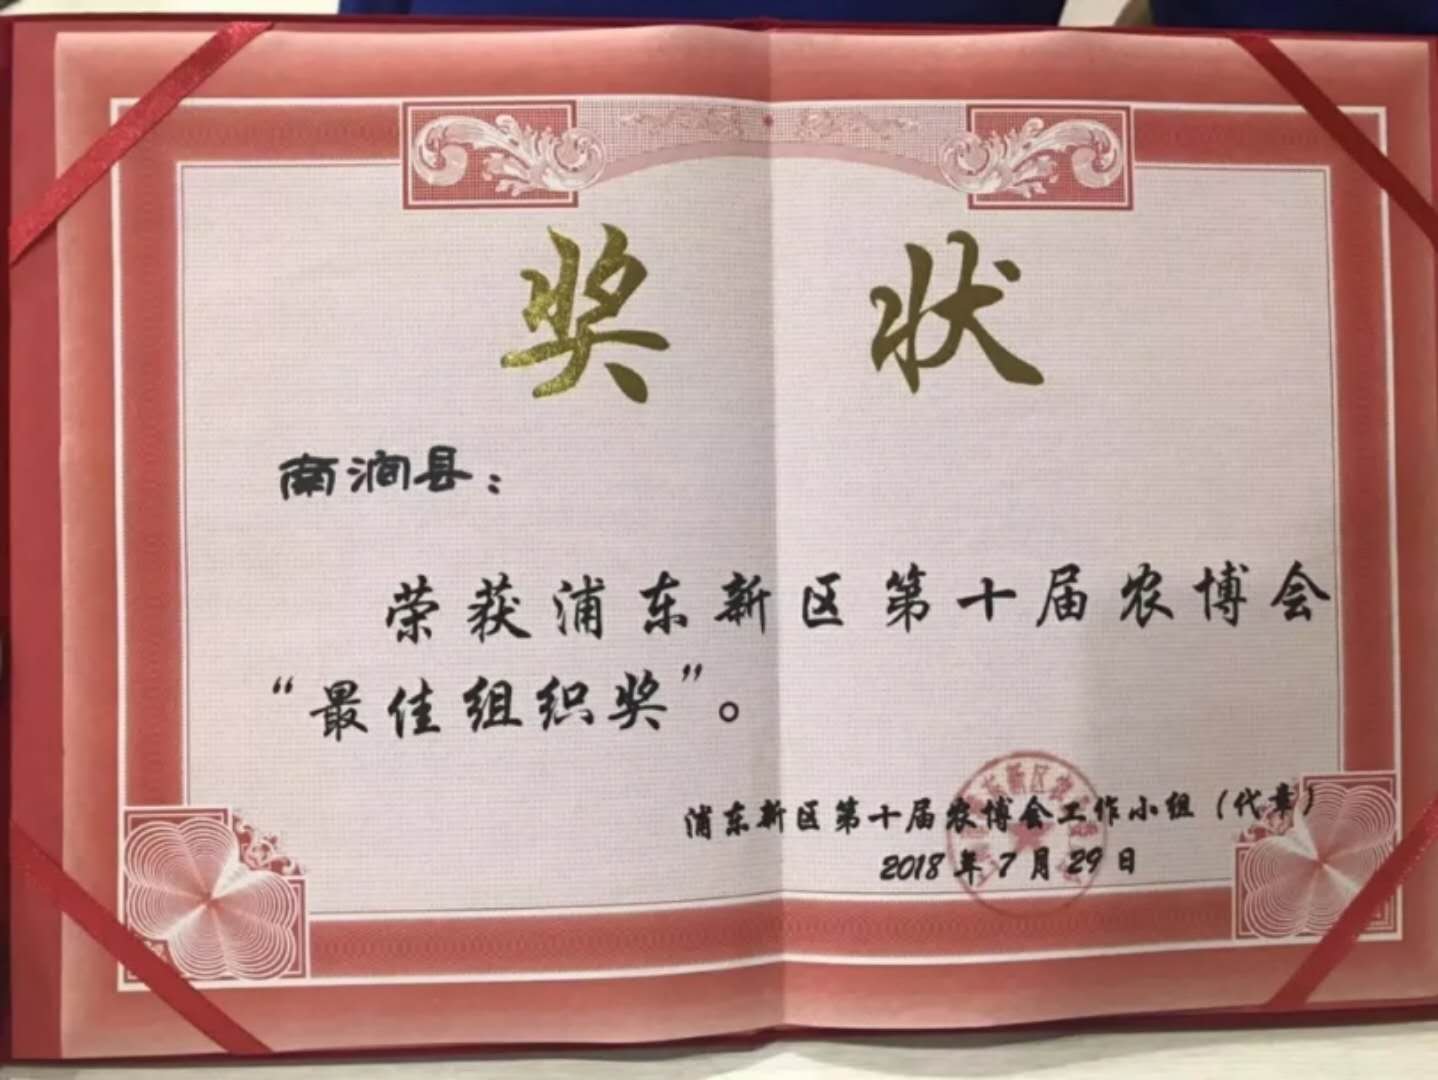 奖 状
南涧县：
荣获浦东新区第十届农博会
“最佳组织奖”。
浦东新区第十届农博会工作小组（代章）
2018年7月29日